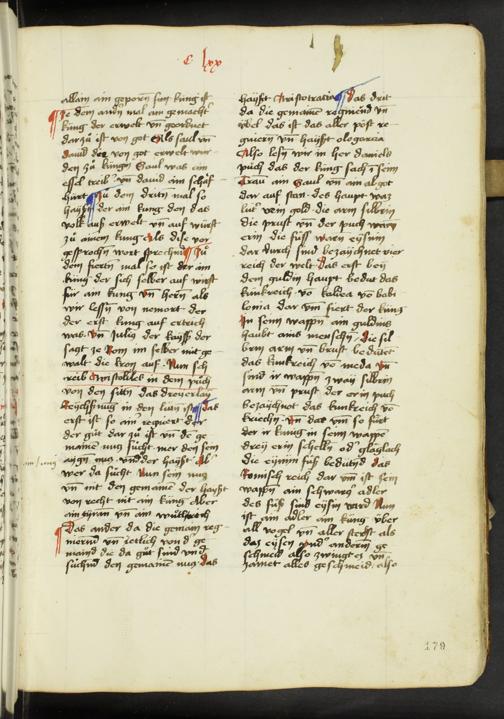 C lxx
allain ain geporn sun kung ist
Ze dem andn mal am gemacht
kung der erwelt vn geordnet
dar zu ist von got Als saul vn
dauid der von got erwelt wur
den zu kunge Saul was ain
essel treib vn dauid ain schaf
hirt Zu dem dritn mal so
haysst der ain kung den das
volk auss erwelt vn auf wurft
zu ainem kung Als die vor
gesprochn wort sprechnd Zu
dem fierten mal so ist der ain
kung der sich selber auf wirft
für ain kung vn herrn als
wir lessn von nemrot der
der erst kung auf ertrich
was vn Julig der kaysser der
sagt ze Rom im selber mit ge
walt die kron auf Nun sch
reib Aristotiles in dem puch
von den sittn das dreyerlay
Reychssnug in den lutn ist das
erst ist so ain regiert der
der gut dar zu ist vn de ge
maine nug sucht mer den sein
aigen nug vnd der haysst
wer da sucht Nun sein nug
vn nit den gemaine der haysst
von recht nit ain king Aber
ain tyran vn am wuttrich
Das ander da die gemain reg
mernd vn ietlich von d ge
maind die da gut sind vnd
suchnd den gemaine nug das
haysst Aristotratia Das drit
da die gemaine regmend vn
vbel das ist das aller post re
guiern vn haysst ologartia
Also lesn wir in her daniels
puch das der kung sach i seim
Traum am Saul vn ain abgot
dar auf stan des haupt waz
luter vein gold die arm silbrin
die prust vn der puch warn
erin die füss warn eysnin
dar durch sind bezaychnet vier
reich der welt das erst bey
dem guldin haupt bedut das
kunkreich vo kaldea vo babi
lonia dar vm fiert der kung
In seim wappn ain guldins
haubt ains menschn die sil
brin arm vn brust bedutet
das kunkreich vo meda vn
send ir wappn zway silbrin
arm vn prust der erin puch
bezaychnot das kunkreich vo
kriechn vn dar vm so fürt
der ir kung in seim wappe
drey erin schelln od gläglach
die eysnin füss bedutnd das
Romisch reich dar vm ist sein
wappn ain schwarz adler
des füss sind eysn vard Nun
ist ain adler ain kung über
all vogl vn aller sterkst als
daz eysen vnd anderm ge
schmeid also zwingt es vn
zamet alles geschmeid also
179